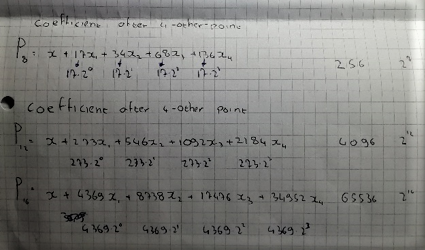 Coefficient after 4-other-point
P8 = x + 17x1 + 34x2 + 68x3 + 136x4 256 2^8
17·2^0 17·2^1 17·2^2 17·2^3
Coefficient after 4-other point
P12 = x + 273x1 + 546x2 + 1092x3 + 2184x4 4096 2^12
273·2^0 273·2^1 273·2^2 273·2^3
P16 = x + 4369x1 + 8738x2 + 17476x3 + 34952x4 65536 2^16
4369·2^0 4369·2^1 4369·2^2 4369·2^3